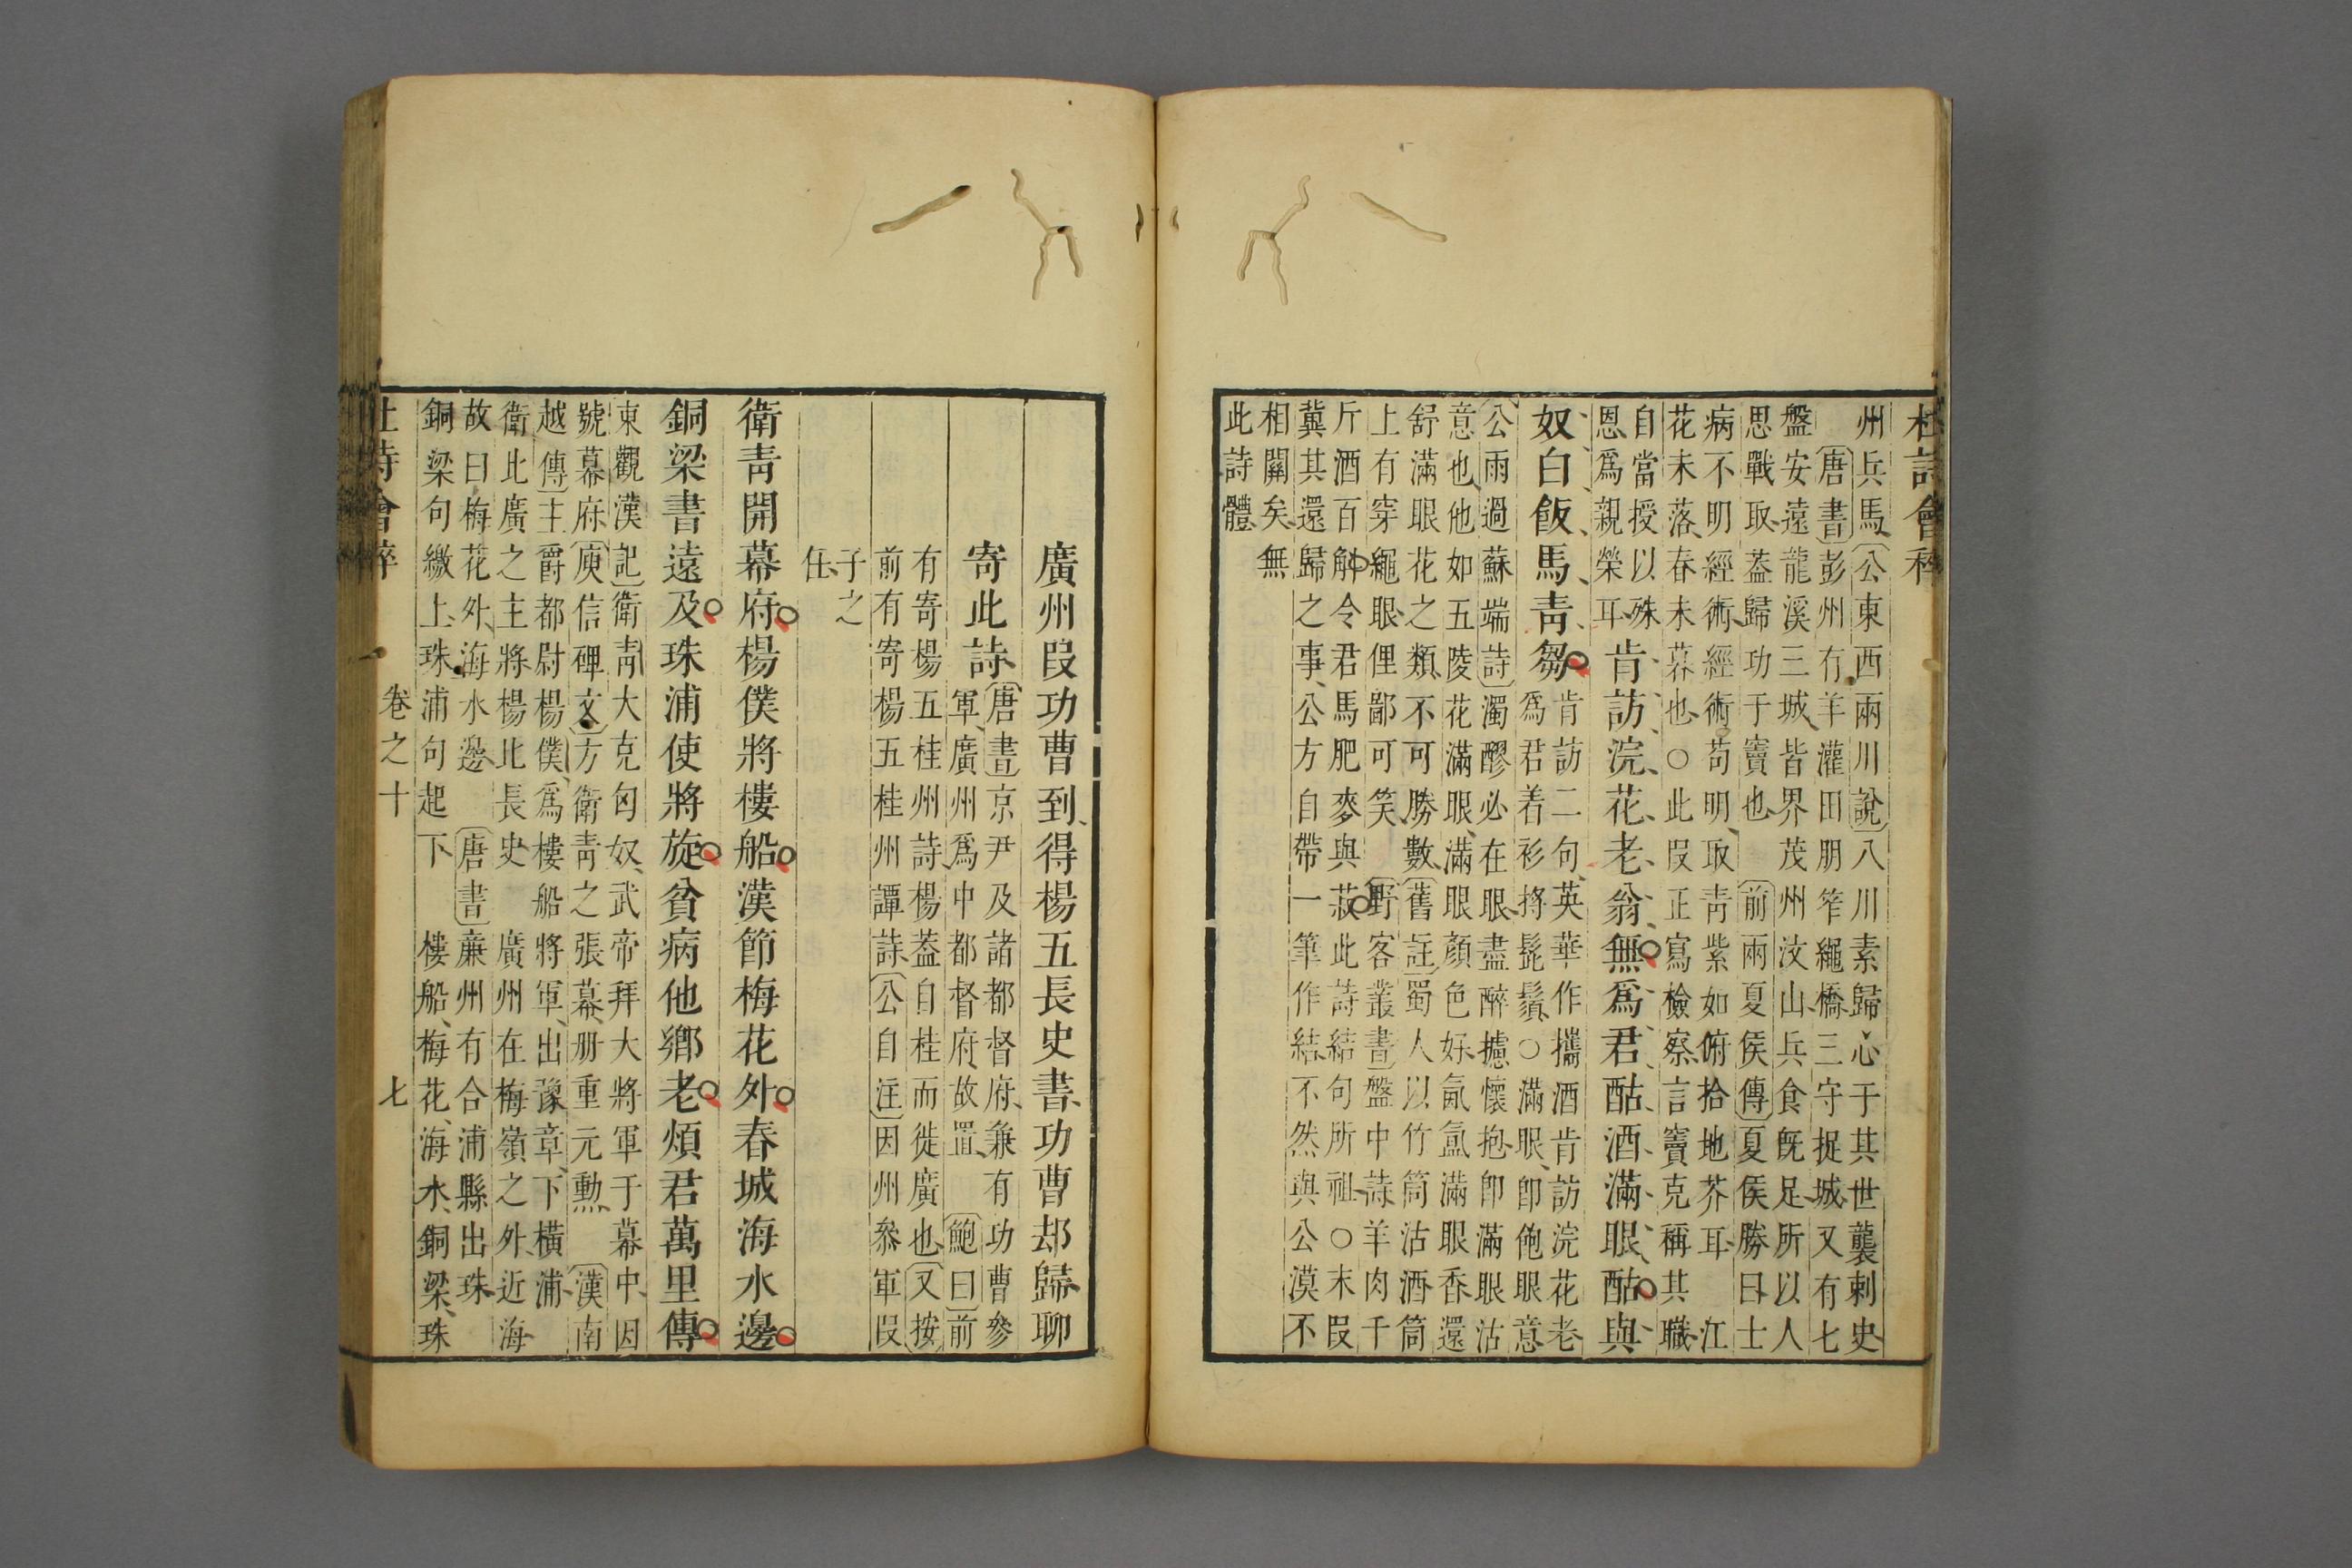 杜詩會稡
州兵馬公東西兩川說八川素歸心于其世襲刺史
唐書彭州有羊灌田朋笮繩橋三守捉城又有七
盤安遠龍溪三城皆界茂州汶山兵食旣足所以人
思戰取葢歸功于竇也 前兩夏侯傳夏侯勝曰士
病不明經術經術苟明取靑紫如俯拾地芥耳 江
花未落春未暮也○此叚正寫檢察言竇克稱其職
自當授以殊
恩爲親榮耳
肯訪浣花老翁無爲君酤酒滿眼酤與
奴白飯馬靑芻
肯訪二句英華作攜酒肯訪浣花老
爲君着衫捋髭鬚○滿眼卽飽眼意
公雨過蘇端詩濁醪必在眼盡醉攄懷抱卽滿眼沽
意也他如五陵花滿眼滿眼顏色好氤氳滿眼香還
舒滿眼花之類不可勝數舊註蜀人以竹筒沽酒筒
上有穿繩眼俚鄙可笑 野客叢書盤中詩羊肉千
斤酒百斛令君馬肥麥與菽此詩結句所祖○末叚
冀其還歸之事公方自帶一筆作結不然與公漠不
相關矣無
此詩體
廣州叚功曹到得楊五長史書功曹却歸聊
寄此詩
唐書京尹及諸都督府兼有功曹參
軍廣州爲中都督府故置 鮑曰前
有寄楊五桂州詩楊葢自桂而徙廣也又按
前有寄楊五桂州譚詩公自注因州叅軍叚
子之
任
衛靑開幕府楊僕將樓船漢節梅花外春城海水邊
銅梁書遠及珠浦使將旋貧病他鄉老煩君萬里傳
東觀漢記衛靑大克匈奴武帝拜大將軍于幕中因
號幕府庾信碑文方衛靑之張幕册重元勲 漢南
越傳主爵都尉楊僕爲樓船將軍出豫章下橫浦
衛此廣之主將楊此長史 廣州在梅嶺之外近海
故曰梅花外海水邊 唐書廉州有合浦縣出珠
銅梁句繳上珠浦句起下 樓船梅花海水銅梁珠
杜詩會稡 卷之十 七